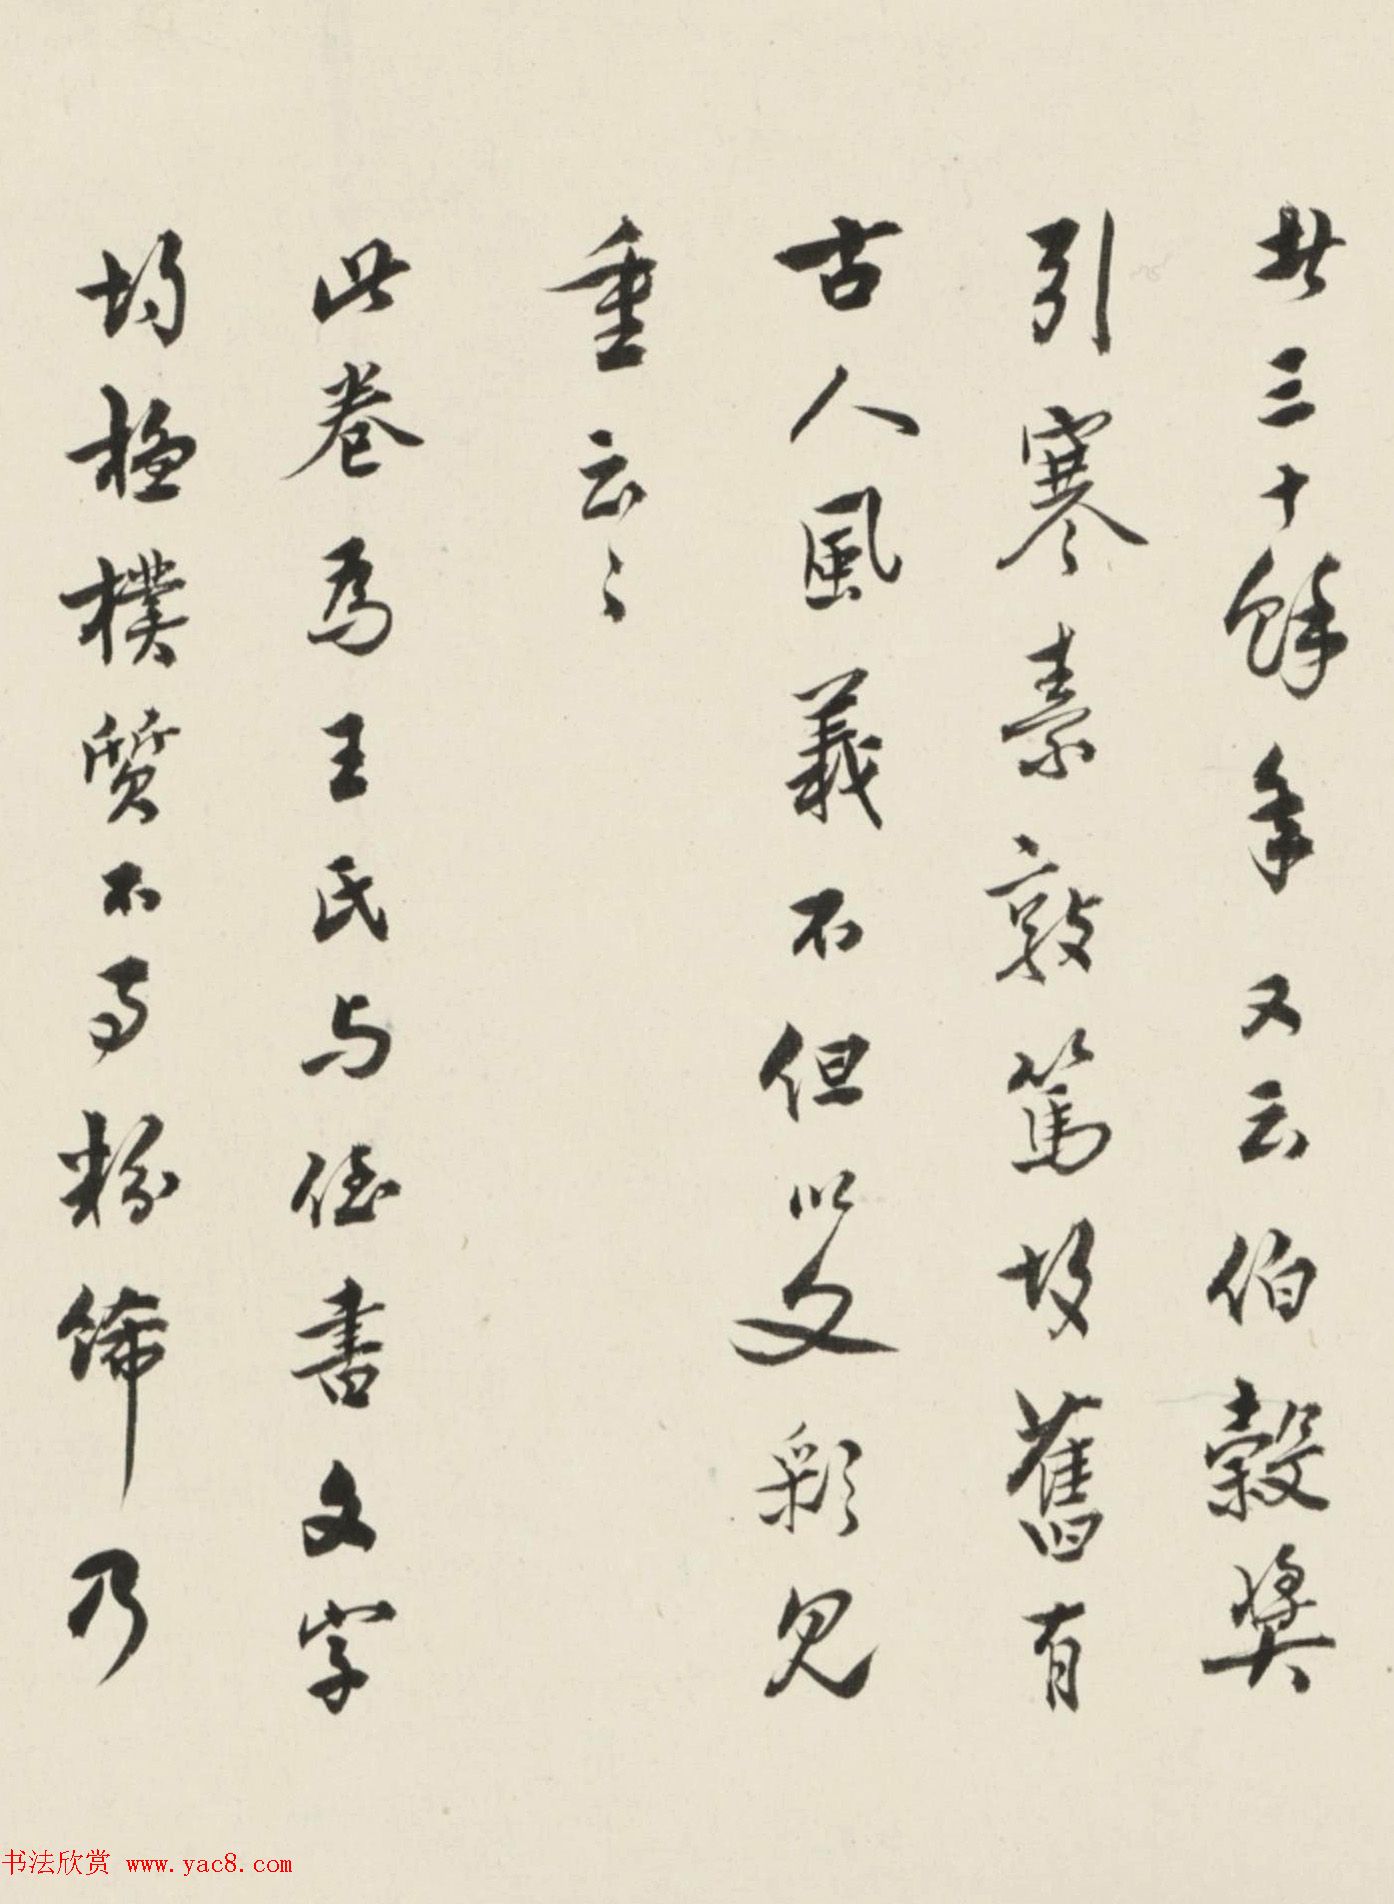 者三十餘年又云伯穀奬
引寒素敦篤故舊有
古人風義不但以文彩見
重云〻
此卷為王氏与侄書文字
均極樸質不事粉飾乃
书法欣赏 www.yac8.com